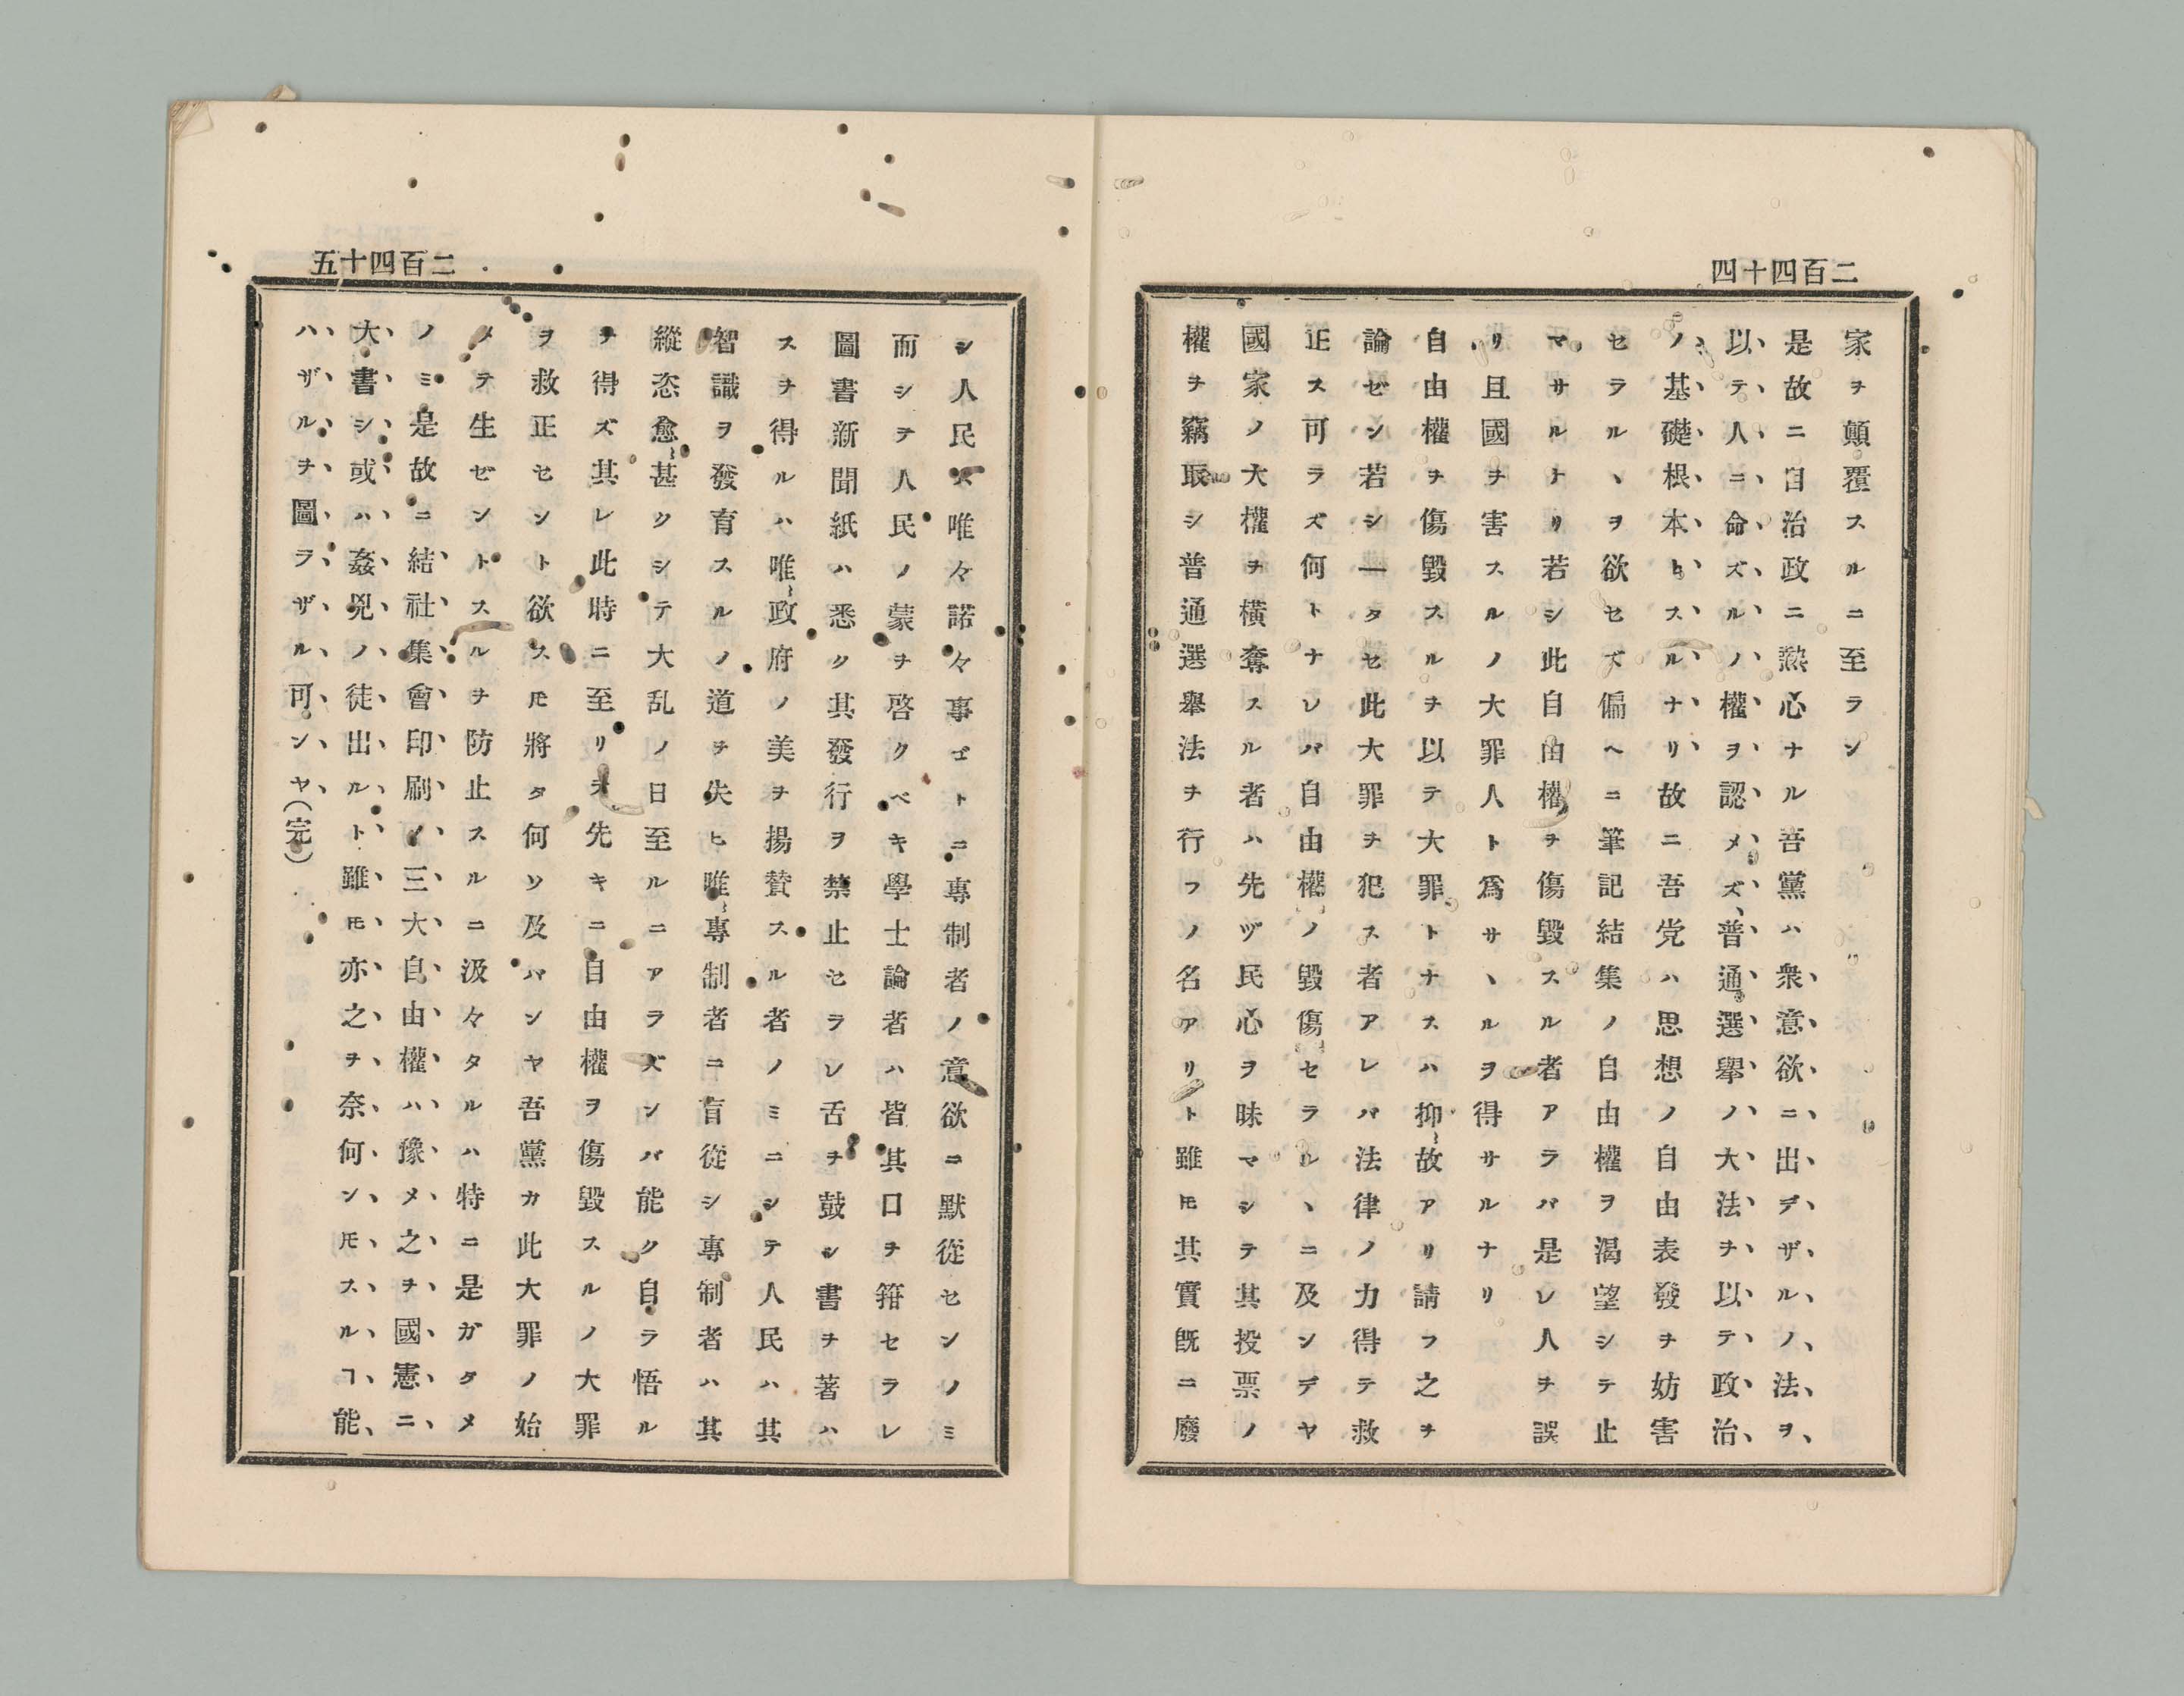 二百四十四
家ヲ顚覆スルニ至ラン
是故ニ自治政ニ熱心ナル吾黨ハ衆、意、欲、ニ、出、デ、ザ、ル、ノ、法、ヲ、
以、テ、人、ニ、命、ズ、ル、ノ、權、ヲ、認、メ、ズ、普、通、選、擧、ノ、大、法、ヲ、以、テ、政、治、
ノ、基、礎、根、本、ト、ス、ル、ナ、リ、故ニ吾党ハ思想ノ自由表發ヲ妨害
セラルヽヲ欲セズ偏ヘニ筆記結集ノ自由權ヲ渴望シテ止
マサルナリ若シ此自由權ヲ傷毀スル者アラバ是レ人ヲ誤
リ且國ヲ害スルノ大罪人ト爲サヽルヲ得サルナリ
自由權ヲ傷毀スルヲ以テ大罪トナスハ抑故アリ請フ之ヲ
論ゼン若シ一タセ此大罪ヲ犯ス者アレバ法律ノ力得テ救
正ス可ラズ何トナレバ自由權ノ毀傷セラルヽニ及ンデヤ
國家ノ大權ヲ橫奪スル者ハ先ヅ民心ヲ昧マシテ其投票ノ
權ヲ竊取シ普通選擧法ヲ行フノ名アリト雖𪜈其實旣ニ廢
二百四十五
シ人民ハ唯々諾々事ゴトニ專制者ノ意欲ニ默從センノミ
而シテ人民ノ蒙ヲ啓クベキ學士論者ハ皆其口ヲ箝セラレ
圖書新聞紙ハ悉ク其發行ヲ禁止セラレ舌ヲ鼓シ書ヲ著ハ
スヲ得ルハ唯政府ノ美ヲ揚賛スル者ノミニシテ人民ハ其
智識ヲ發育スルノ道ヲ失ヒ唯專制者ニ盲從シ專制者ハ其
縱恣愈甚クシテ大乱ノ日至ルニアラズンバ能ク自ラ悟ル
ヲ得ズ其レ此時ニ至リテ先キニ自由權ヲ傷毀スルノ大罪
ヲ救正セント欲ス𪜈將タ何ソ及バンヤ吾黨カ此大罪ノ始
メテ生ゼントスルヲ防止スルニ汲々タルハ特ニ是ガタメ
ノミ是故ニ結、社、集、會、印、刷、ノ、三、大、自、由、權、ハ、豫、メ、之、ヲ、國、憲、ニ、
大、書、シ、或、ハ、姦、兇、ノ、徒、出、ル、ト、雖、𪜈、亦、之、ヲ、奈、何、ン、𪜈、ス、ル、ヿ、能、
ハ、ザ、ル、ヲ、圖、ラ、ザ、ル、可、ン、ヤ、(完)